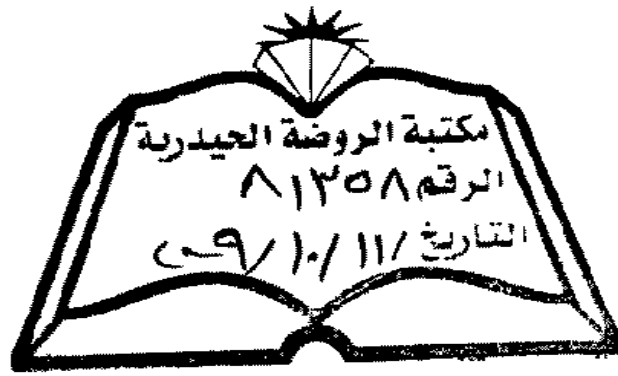 مكتبة الروضة الحيدرية
الرقم ٨١٣٥٨
التاريخ ١١/ ١٠/ ٢٠٠٩